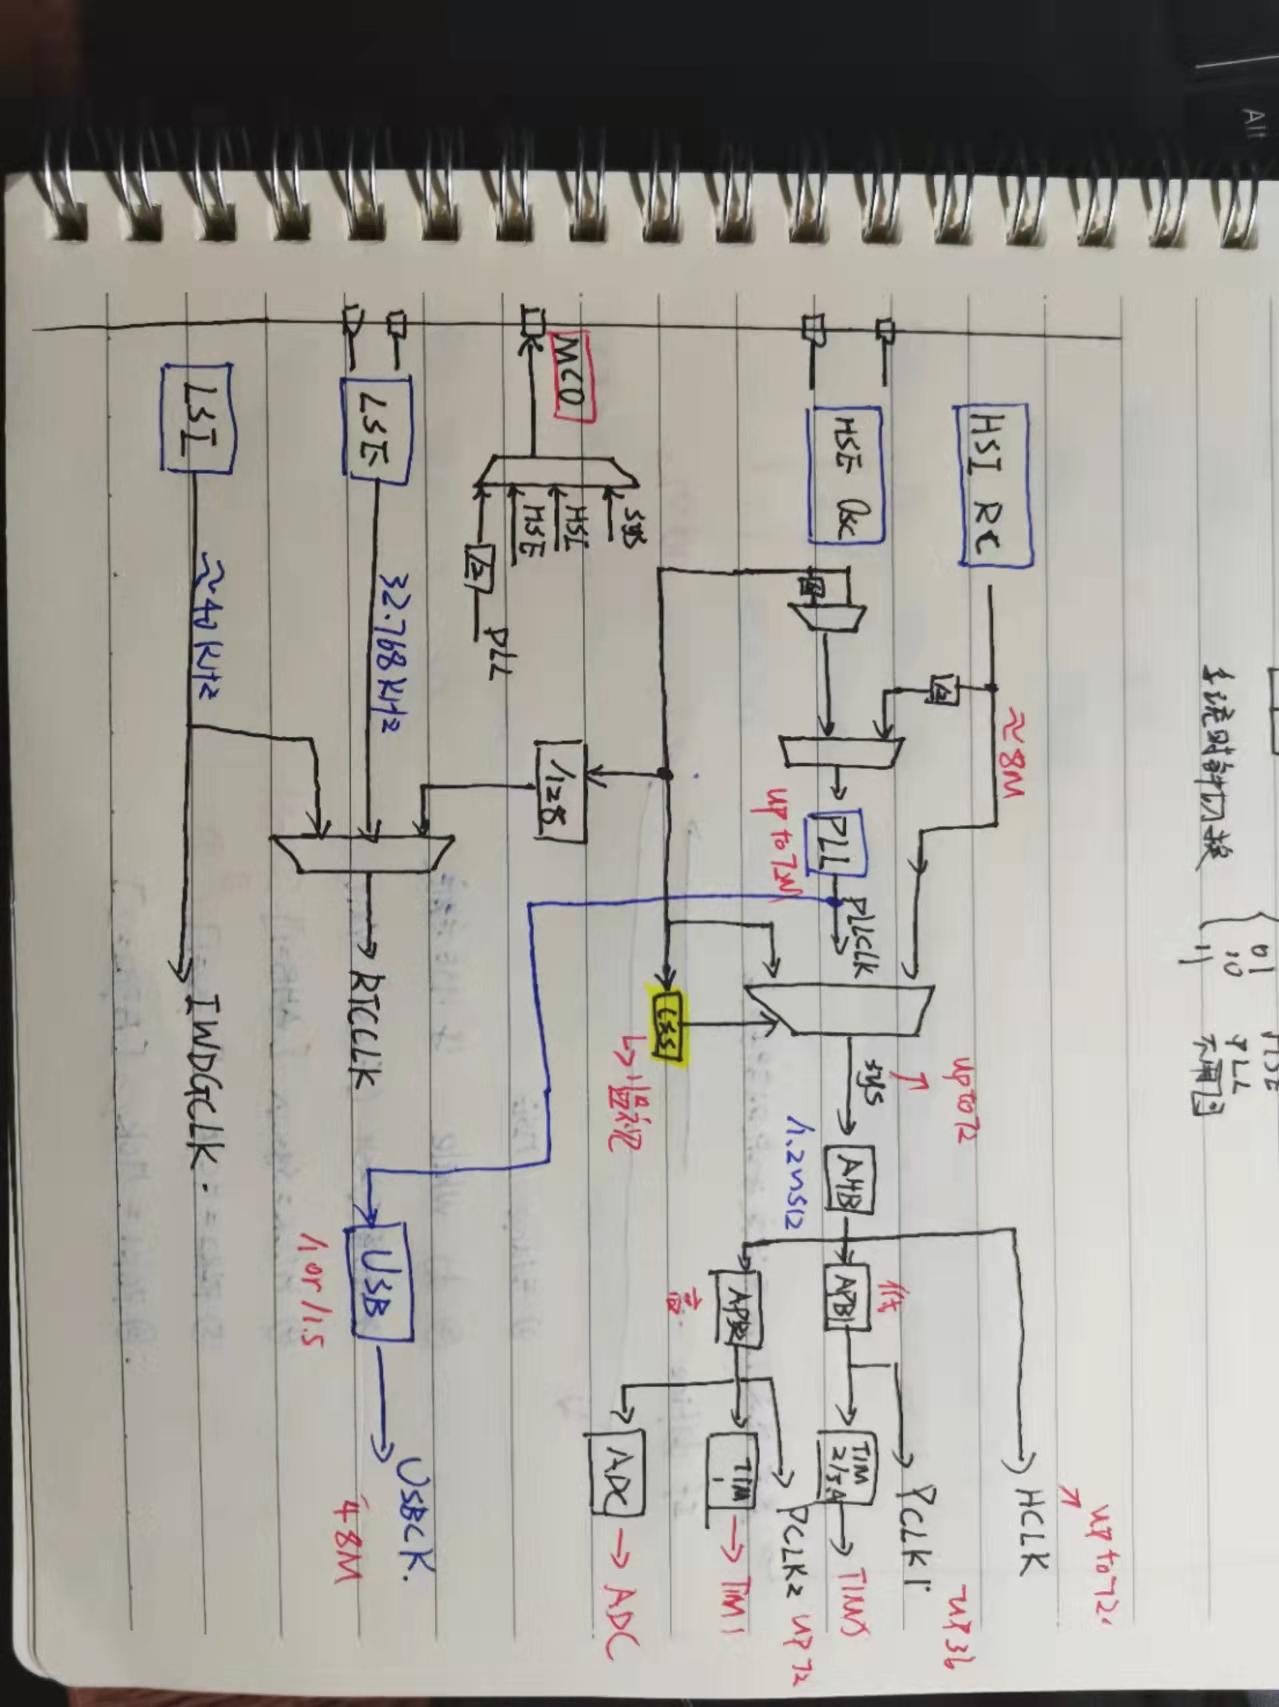 All
系统时钟切换
01
10 PLL
11 不用
HSI RC
≈8M
/2
up to 72
HCLK
up to 72
HSE Osc
PLL
up to 72M
PLLCLK
sys
AHB
/1.2~512
APB1
低
PCLK1
up 36
TIM
2/3.4
TIMS
CSS
→监视
APB2
高
PCLK2 up 72
TIM
1
TIM1
ADC
ADC
MCO
sys
HSI
HSE
/2
PLL
/128
LSE
32.768KHz
RTCCLK
USB
/1 or /1.5
USBCK.
48M
LSI
≈40KHz
IWDGCLK.